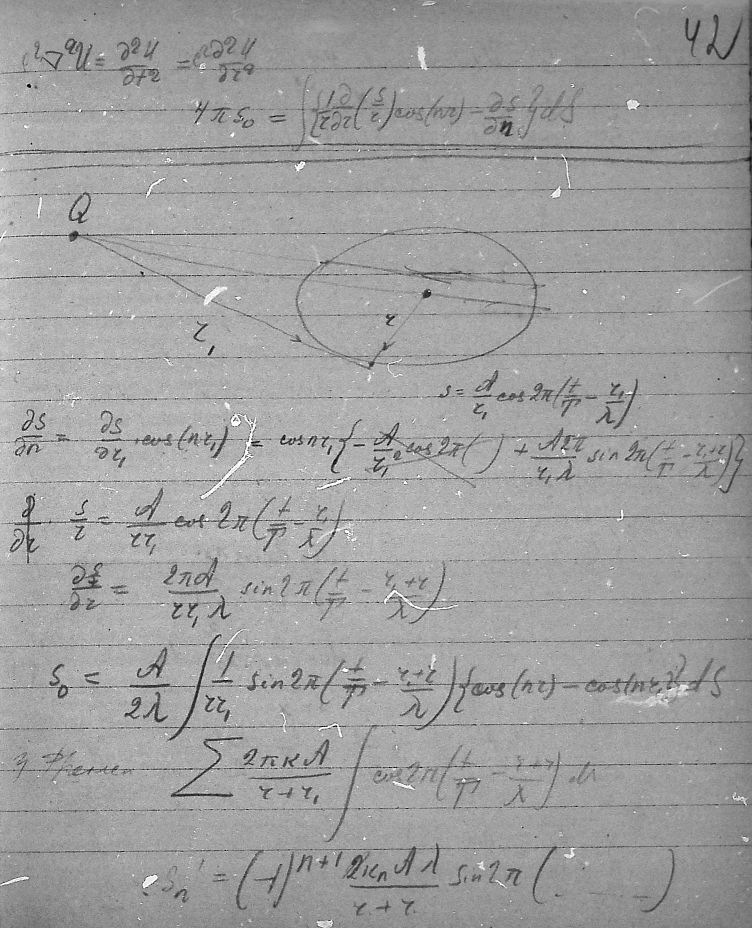 42
c²∇²U = ∂²U/∂t² = c²∂²U/∂r²
4πs₀ = ∫{1/r ∂/∂r (s/r) cos(nr) − ∂s/∂n} dS
Q
r₁
r
s = A/r₁ cos 2π(t/T − r₁/λ)
∂s/∂n = ∂s/∂r₁ · cos(nr₁) = cos nr₁ {− A/r₁² cos 2π( ) + A2π/r₁λ sin 2π(t/T − r₁+r/λ)}
∂/∂r · s/r = A/rr₁ cos 2π(t/T − r₁/λ)
∂s/r/∂r = 2πA/rr₁λ sin 2π(t/T − r₁+r/λ)
s₀ = A/2λ ∫ 1/rr₁ sin 2π(t/T − r₁+r/λ) {cos(nr) − cos(nr₁)} dS
∑ 2πκA/r+r₁ ∫ cos 2π(t/T − r₁+r/λ) dr
sₙ' = (−1)ⁿ⁺¹ 2κₙAλ/r₁+r sin 2π( )